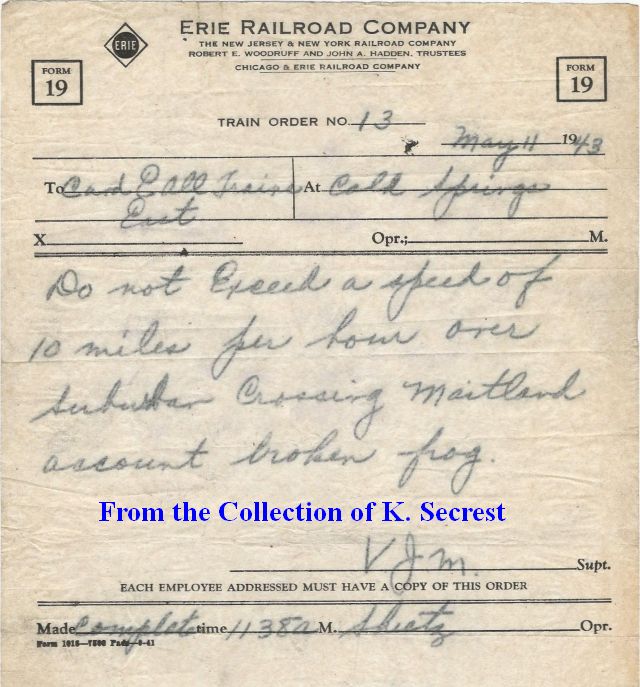 ERIE
ERIE RAILROAD COMPANY
THE NEW JERSEY & NEW YORK RAILROAD COMPANY
ROBERT E. WOODRUFF AND JOHN A. HADDEN, TRUSTEES
CHICAGO & ERIE RAILROAD COMPANY
FORM
19
FORM
19
TRAIN ORDER NO. 13
May 11 1943
To C and E All Trains At Cold Springs
East
X Opr.; M.
Do not Exceed a speed of
10 miles per hour over
Suburban Crossing Maitland
account broken frog.
From the Collection of K. Secrest
V J M. Supt.
EACH EMPLOYEE ADDRESSED MUST HAVE A COPY OF THIS ORDER
Made Complete time 1138 a M. Sheetz Opr.